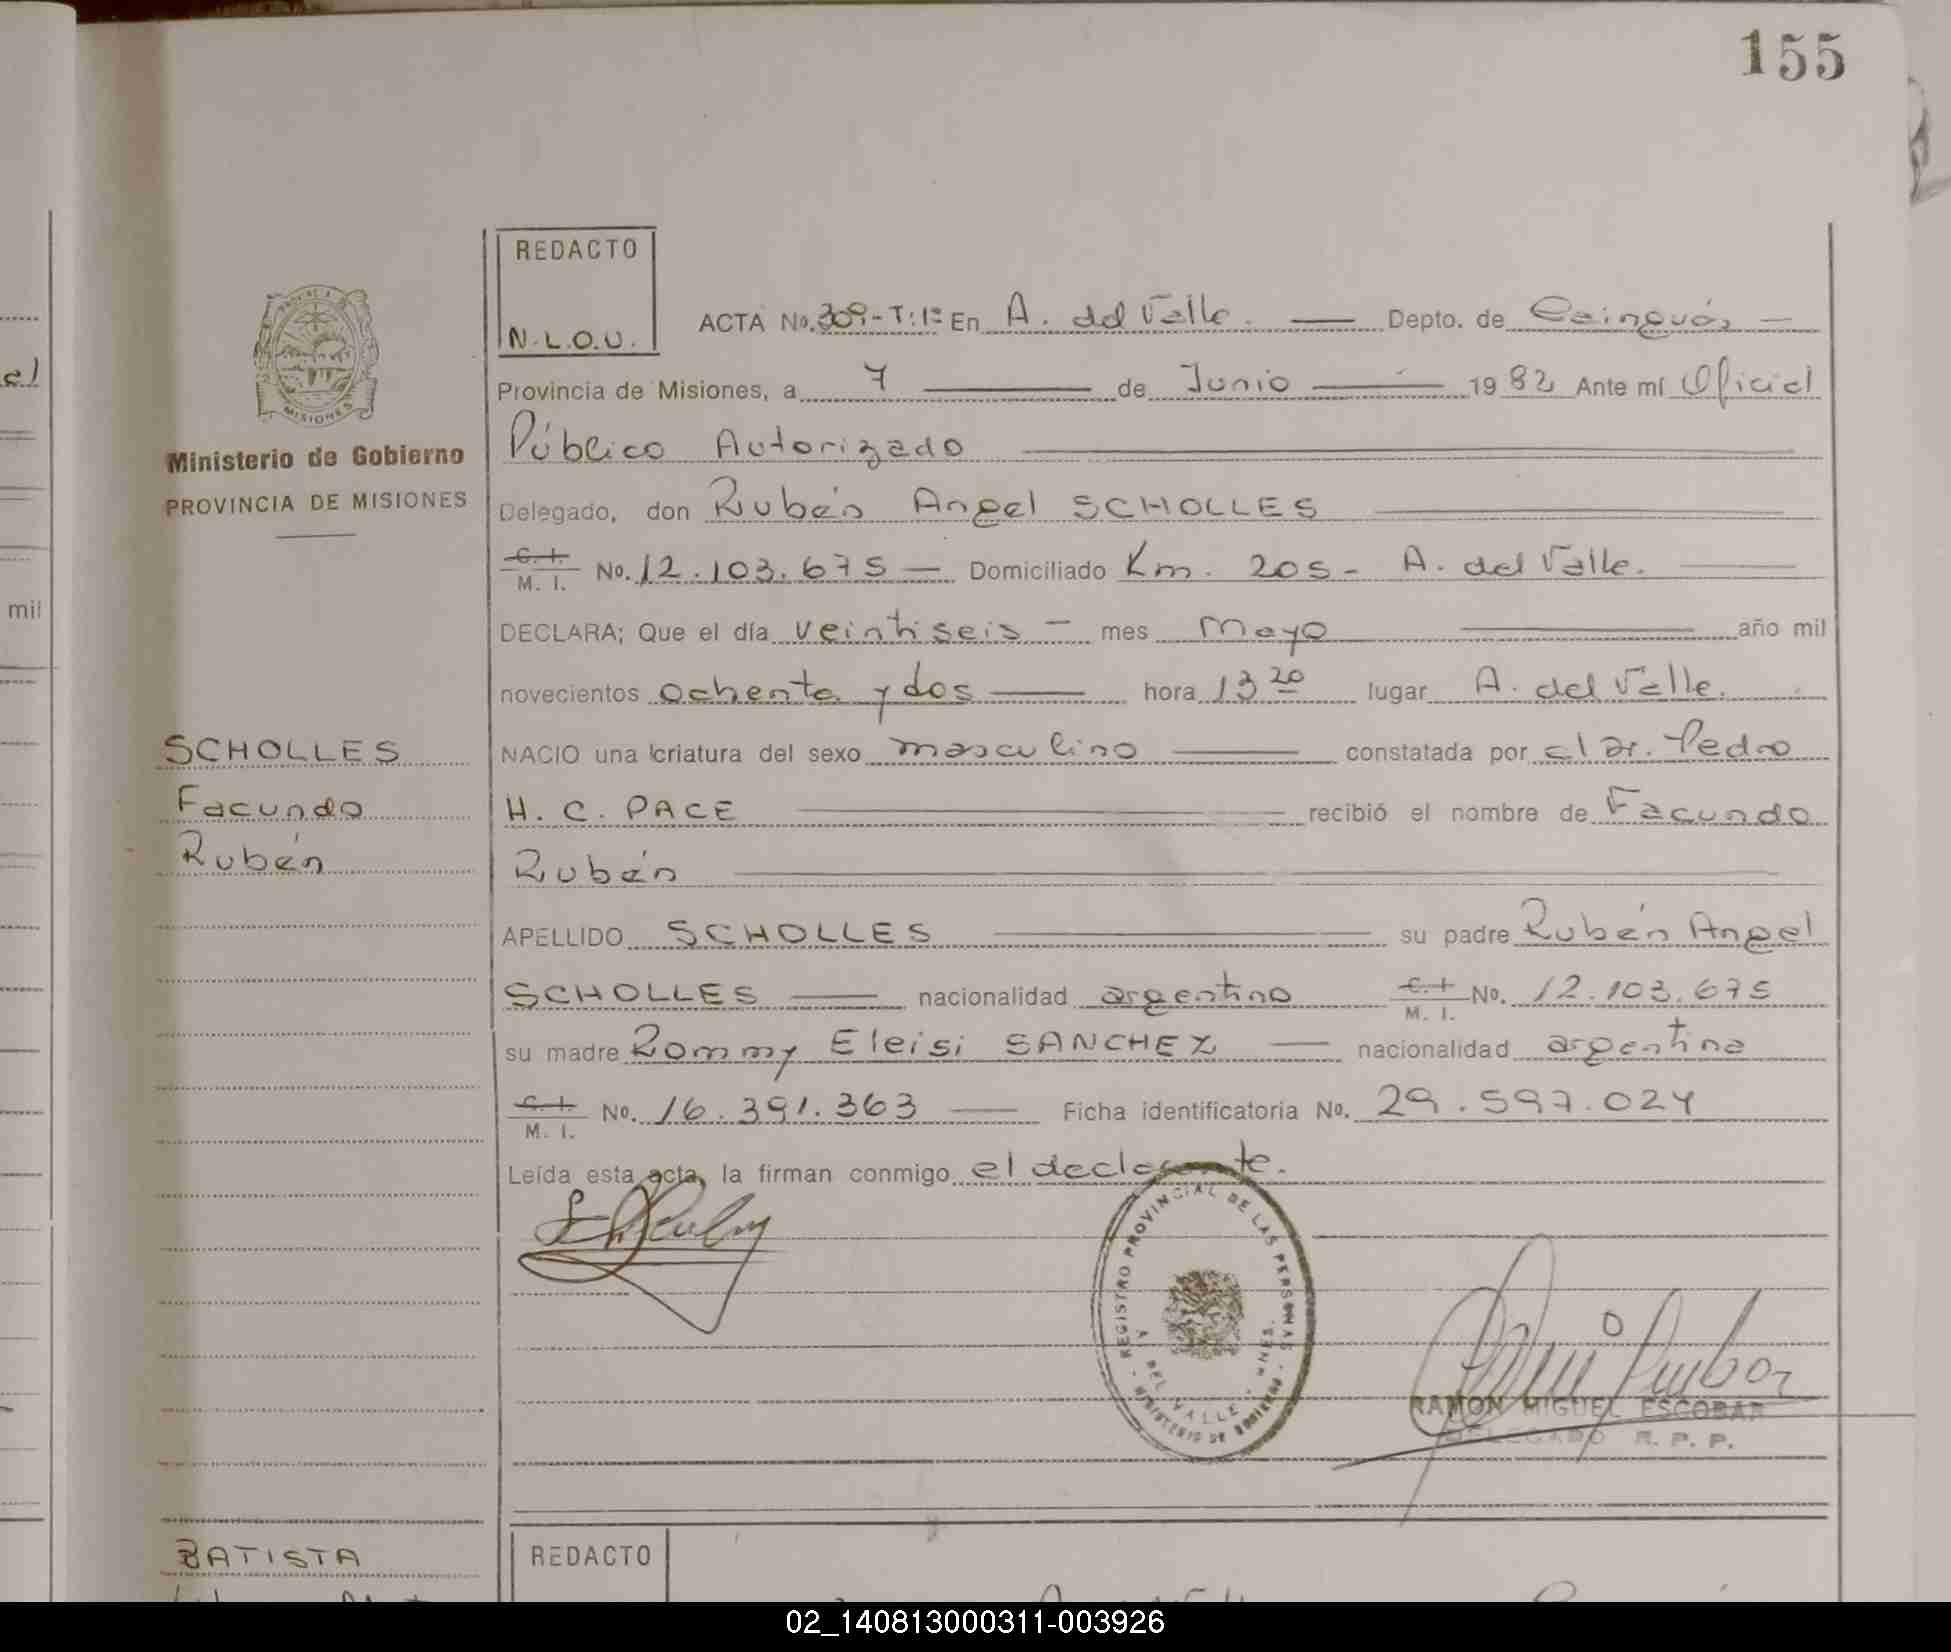 155
REDACTO
N.L.O.U.
ACTA No. 309-T:1º En A. del Valle. Depto. de Cainguás
PROVINCIA DE MISIONES
Provincia de Misiones, a 7 de Junio 1982 Ante mí Oficial
el
Público Autorizado
Ministerio de Gobierno
PROVINCIA DE MISIONES
Delegado, don Rubén Angel SCHOLLES
C.I. M. I. No. 12.103.675 Domiciliado Km. 205 - A. del Valle.
mil
DECLARA; Que el día veintiseis mes mayo año mil
novecientos ochenta y dos hora 13 20 lugar A. del Valle.
SCHOLLES
Facundo
Rubén
NACIO una criatura del sexo masculino constatada por el Dr. Pedro
H. C. PACE recibió el nombre de Facundo
Rubén
APELLIDO SCHOLLES su padre Rubén Angel
SCHOLLES nacionalidad argentino C.I. M. I. No. 12.103.675
su madre Rommy Eleisi SANCHEZ nacionalidad argentina
C.I. M. I. No. 16.391.363 Ficha identificatoria No. 29.597.024
Leída esta acta, la firman conmigo el declarante.
REGISTRO PROVINCIAL DE LAS PERSONAS - MINISTERIO DE GOBIERNO -
A. DEL VALLE - MNES.
RAMON MIGUEL ESCOBAR
DELEGADO R. P. P.
BATISTA
REDACTO
02_140813000311-003926